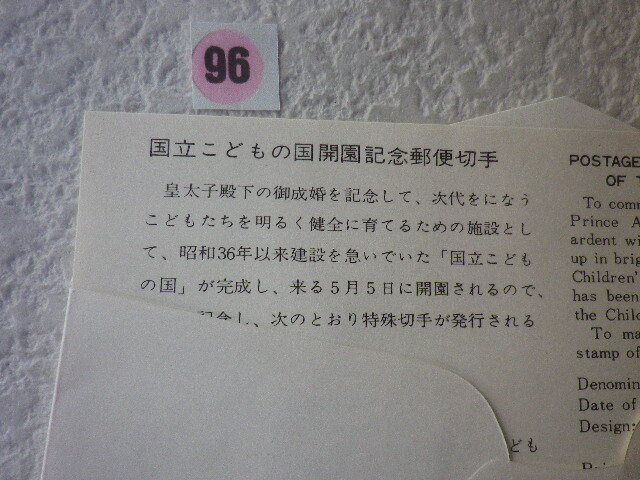 96
国立こどもの国開園記念郵便切手
皇太子殿下の御成婚を記念して、次代をになう
こどもたちを明るく健全に育てるための施設とし
て、昭和36年以来建設を急いでいた「国立こども
の国」が完成し、来る5月5日に開園されるので、
記念し、次のとおり特殊切手が発行される
ども
POSTAGE
OF T
To comm
Prince A
ardent wi
up in brig
Children'
has been
the Child
To ma
stamp of
Denomin
Date of
Design: